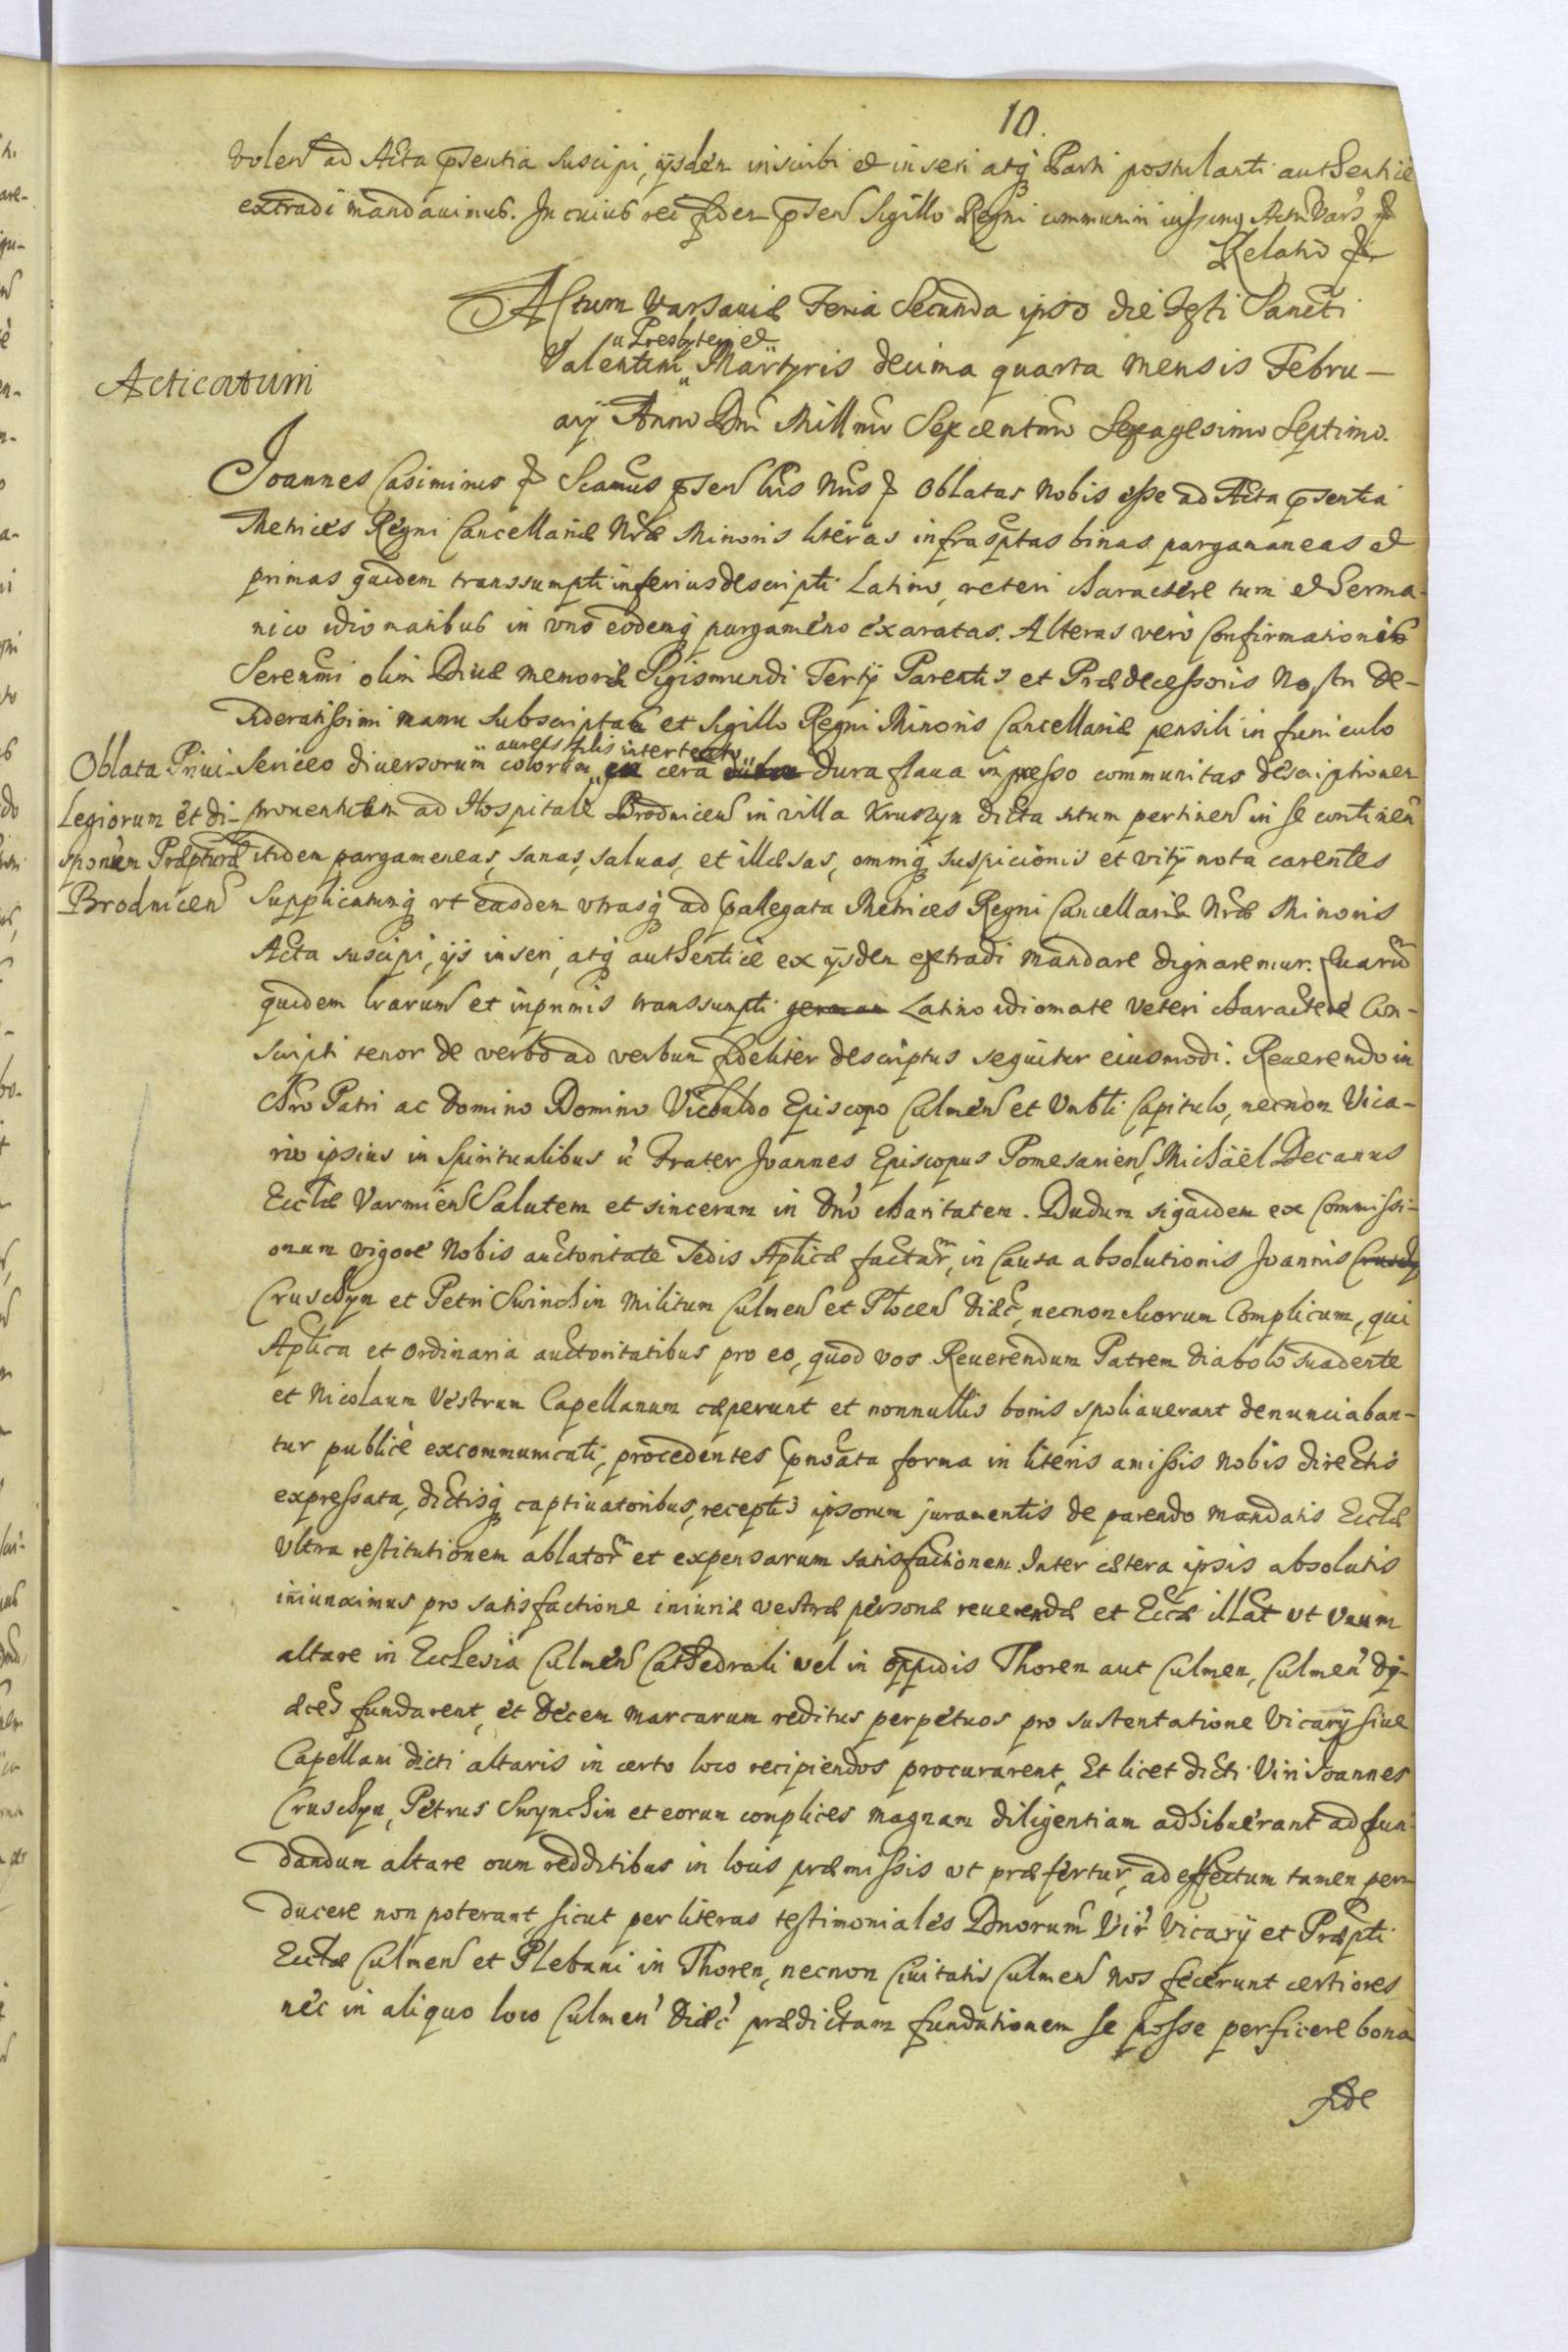 10.
volen ad Acta psentia suscipi, ijsdem inscribi et inseri atq Parti postulanti authentice
extradi mandauimus. In cuius rei fidem psen Sigillo Regni communiri iussimus Actum Vars
Relatio
Actum Varsauiæ Feria Secunda ipso die Festi Sancti
Presbyteri et
Valentini Martyris decima quarta mensis Febru-
Acticatum
arij Anno Dni Millmo Sexcentmo Sexagesimo Septimo.
Joannes Casimirus Scamus psen lris Nris Oblatas Nobis esse ad Acta psentia
Metrices Regni Cancellariæ Nræ Minoris literas infrasptas binas pargamaneas et
primas quidem transsumpti inferius descripti Latino, veteri charactere tum et Germa-
nico idiomatibus in uno eodemq pargameno exaratas. Alteras vero Confirmationis
Serenmi olim Diuæ memoriæ Sigismundi Tertij Parentis et Prædecessoris Nostri De-
sideratissimi manu subscriptas et Sigillo Regni Minoris Cancellariæ pensili in funiculo
aureis filis intertexto
Oblata Priui-
legiorum et di-
sponem Præpturæ
Brodnicen
Sericeo diuersorum colorum, cera dura flaua impresso communitas descriptionem
prouentuum ad Hospitale Brodnicen in villa Kruszyn dicta situm pertinen in se continen
itidem pargameneas, sanas, saluas, et illæsas, omniq suspicionis et vitij nota carentes
Supplicatumq vt easdem vtrasq ad palegata Metrices Regni Cancellariæ Nræ Minoris
Acta suscipi, ijs inseri, atq authentice ex ijsdem extradi mandare dignaremur. Quarum
quidem lrarum et inprimis transsumpti Latino idiomate veteri charactere Con-
scripti tenor de verbo ad verbum fideliter descriptus sequitur eiusmodi. Reuerendo in
Chro Patri ac Domino Domino Vicbaldo Episcopo Culmen et Vnbli Capitulo, necnon Vica-
rio ipsius in Spiritualibus Frater Joannes Episcopus Pomesanien, Michäel Decanus
Ecclæ Varmien Salutem et sinceram in Dno charitatem. Dudum siquidem ex Commissi-
onum vigore Nobis auctoritate Sedis Aplicæ factar, in Causa absolutionis Joannis
Cruschyn et Petri Swinchin Militum Culmen et Plocen Diæc, necnon eorum Complicum, qui
Aplica et Ordinaria auctoritatibus pro eo, quod vos Reuerendum Patrem diabolo suadente
et Nicolaum Vestrum Capellanum cæperunt et nonnullis bonis spoliauerant denunciaban-
tur publice excommunicati, procedentes forma in literis amissis nobis directis
expressata, dictisq captiuatoribus, receptis ipsorum juramentis de parendo mandatis Ecclæ
Vltra restitutionem ablator et expensarum satisfactionem. Inter cætera ipsis absolutis
iniunximus pro satisfactione iniuriæ vestræ personæ reuerendæ et Eccæ illat vt vnum
altare in Ecclesia Culmen Cathedrali vel in oppidis Thoren aut Culmen, Culmen dij-
æces fundarent, et decem marcarum reditus perpetuos pro sustentatione Vicarij siue
Capellani dicti altaris in certo loco recipiendos procurarent, Et licet dicti Viri Joannes
Cruschyn, Petrus Swynchin et eorum complices magnam diligentiam adhibuerant ad fun-
dandum altare cum redditibus in locis præmissis vt præfertur, ad effectum tamen per-
ducere non poterant sicut per literas testimoniales Dnorum Vir Vicarij et Præpti
Ecclæ Culmen et Plebani in Thoren, necnon Ciuitatis Culmen nos fecerunt certiores
nec in aliquo loco Culmen Diæc prædictam fundationem se posse perficere bona
fide